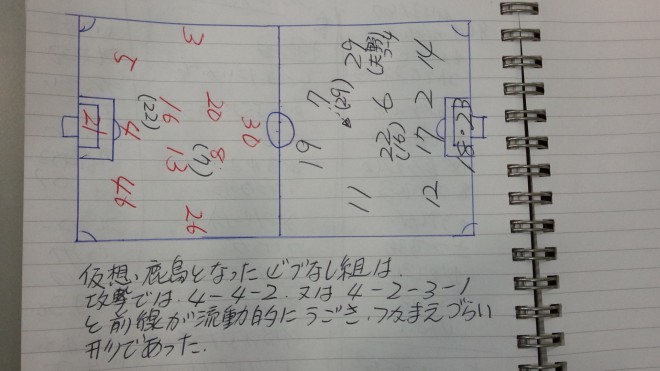 3
5
21
4
46
(22)
16
13
20
8
(7)
26
30
7
(29)
19
11
29
(天野)
コーチ
6
22
(16)
14
2
17
12
18・23
仮想、鹿島となったビブなし組は、
攻撃では、4-4-2、又は4-2-3-1
と前線が流動的にうごき、つかまえづらい
形であった。